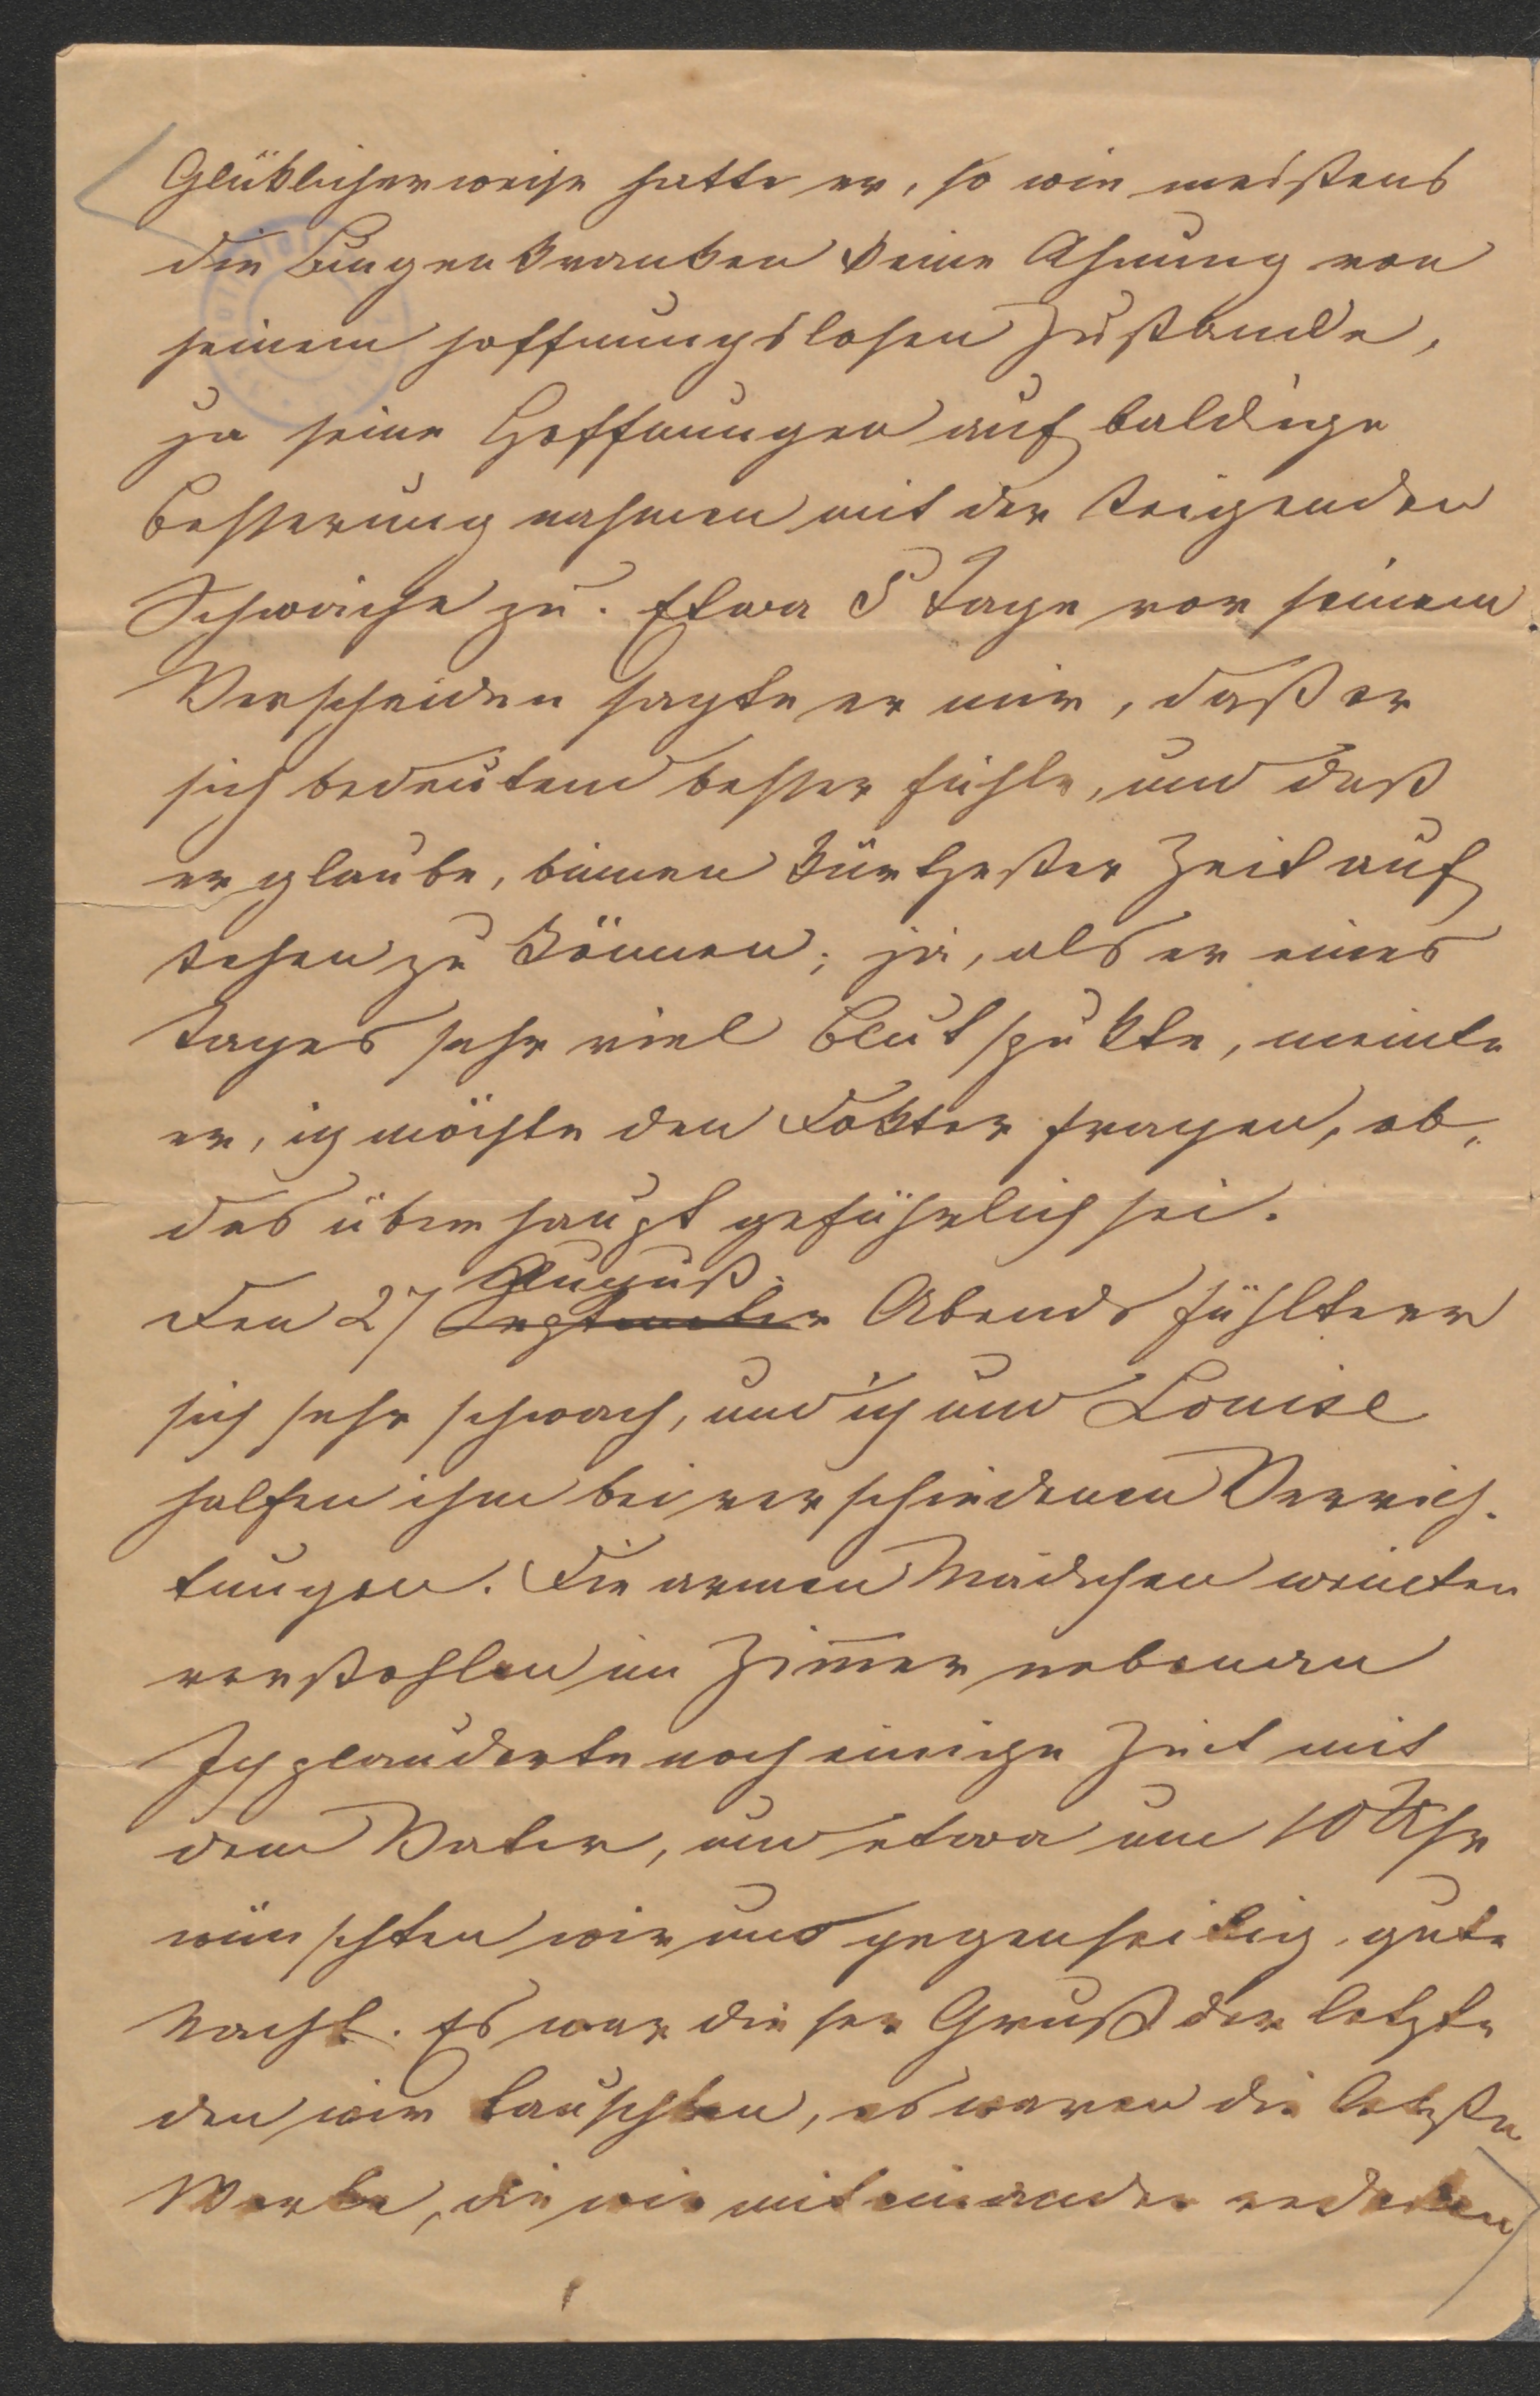 Glüklicherweise hatte er, so wie meistens
die Lungenkranken keine Ahnung von
seinem hoffnungslosen Zustande,
ja seine Hoffnungen auf baldige
Besserung nahmen mit der steigenden
Schwäche zu. Etwa 5 Tage vor seinem
Verscheiden sagte er mir, daß er
sich bedeutend besser fühle, und daß
er glaube, binnen kürtzester Zeit auf
stehen zu können; ja, als er eines
Tages sehr viel Blut spukte, meinte
er, ich möchte den Doktor fragen, ob
das überhaupt gefährlich sei.
August
Den 27 September Abends fühlte er
sich sehr schwach, und ich und Louise
halfen ihm bei verschiedenen Verrich-
tungen. Die armen Mädchen weinten
verstohlen im Zimmer nebenan
Ich plauderte noch einige Zeit mit
dem Vater, und etwa um 10 Uhr
wünschten wir uns gegenseitig gute
Nacht. Es war dieser Gruß der letzte
den wir tauschten, es waren die letzten
Worte, die wir miteinander redeten